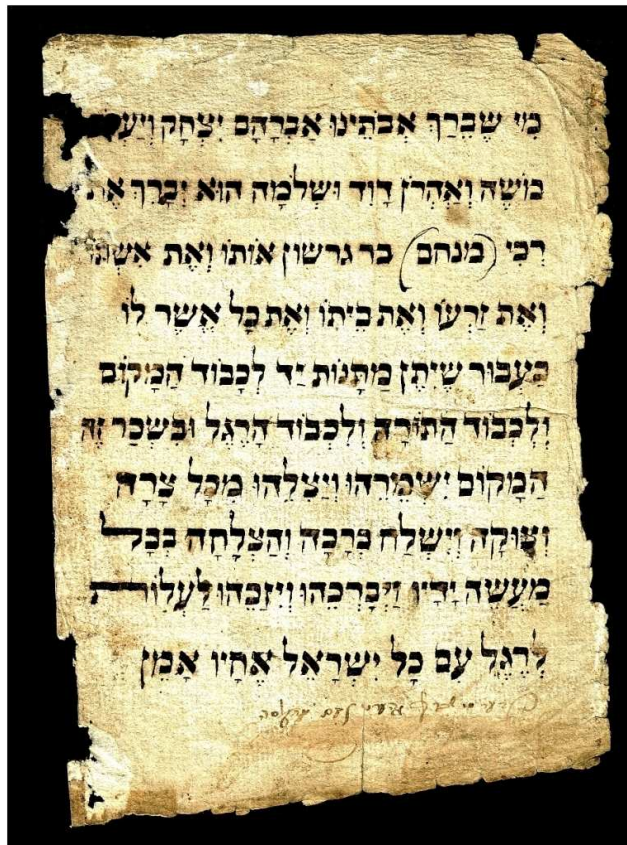 מִי שֶׁבֵּרַךְ אֲבֹתֵינוּ אַבְרָהָם יִצְחָק
מֹשֶׁה וְאַהֲרֹן דָּוִד וּשְׁלֹמֹה הוּא יְבָרֵךְ אֶת
רִבִּי (מנחם) בר גרשון אוֹתוֹ וְאֶת אִשְׁתּוֹ
וְאֶת זַרְעוֹ וְאֶת בֵּיתוֹ וְאֶת כָּל אֲשֶׁר לוֹ
בַּעֲבוּר שֶׁיִּתֵּן מַתְּנוֹת יַד לִכְבוֹד הַמָּקוֹם
וְלִכְבוֹד הַתּוֹרָה וְלִכְבוֹד הָרֶגֶל וּבִשְׂכַר זֶה
הַמָּקוֹם יִשְׁמְרֵהוּ וְיַצִּלֵהוּ מִכָּל צָרָה
וְצוּקָה וְיִשְׁלַח בְּרָכָה וְהַצְלָחָה בְּכָל
מַעֲשֵׂה יָדָיו וִיבָרְכֵהוּ וִיזַכֵּהוּ לַעֲלוֹת
לְרֶגֶל עִם כָּל יִשְׂרָאֵל אֶחָיו אָמֵן